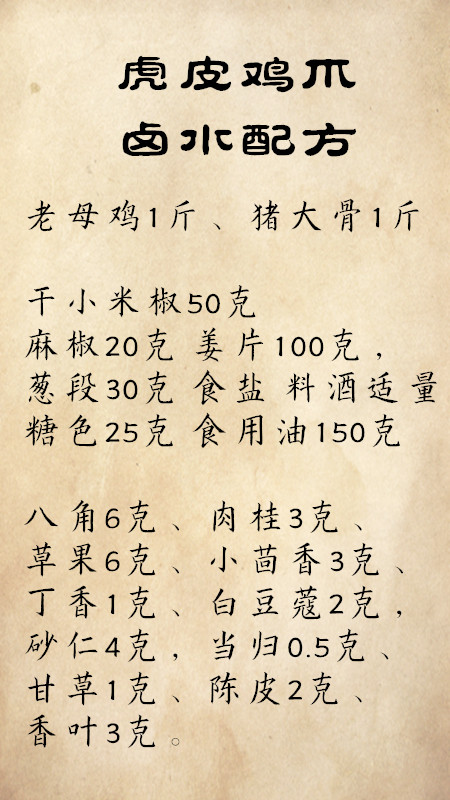 虎皮鸡爪
卤水配方
老母鸡1斤、猪大骨1斤
干小米椒50克
麻椒20克 姜片100克，
葱段30克 食盐 料酒适量
糖色25克 食用油150克
八角6克、肉桂3克、
草果6克、小茴香3克、
丁香1克、白豆蔻2克，
砂仁4克，当归0.5克、
甘草1克、陈皮2克、
香叶3克。